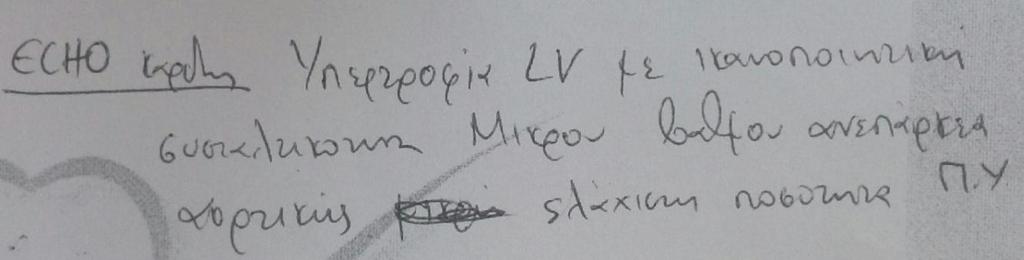 ECHO καρδιάς Υπερτροφία LV με ικανοποιητική
συσταλτικότητα Μικρού βαθμού ανεπάρκεια
αορτικής ελάχιστη ποσότητα Π.Υ